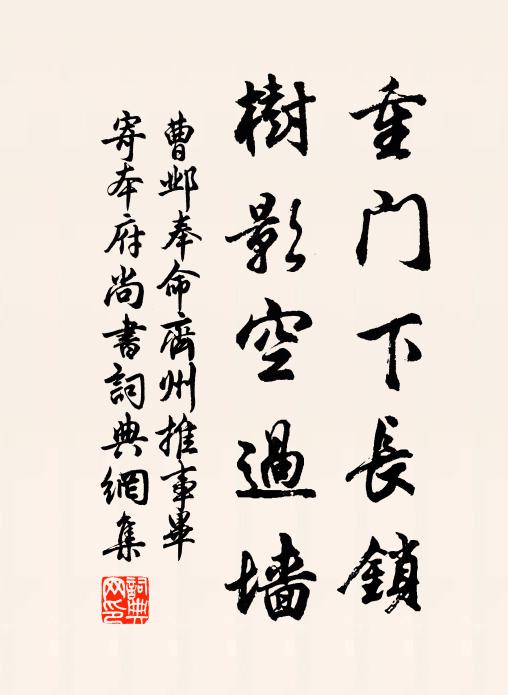 重门下長鎖
樹影空過墙
曹邺奉命齊州推事畢
寄本府尚書詞典網集
詞典网印